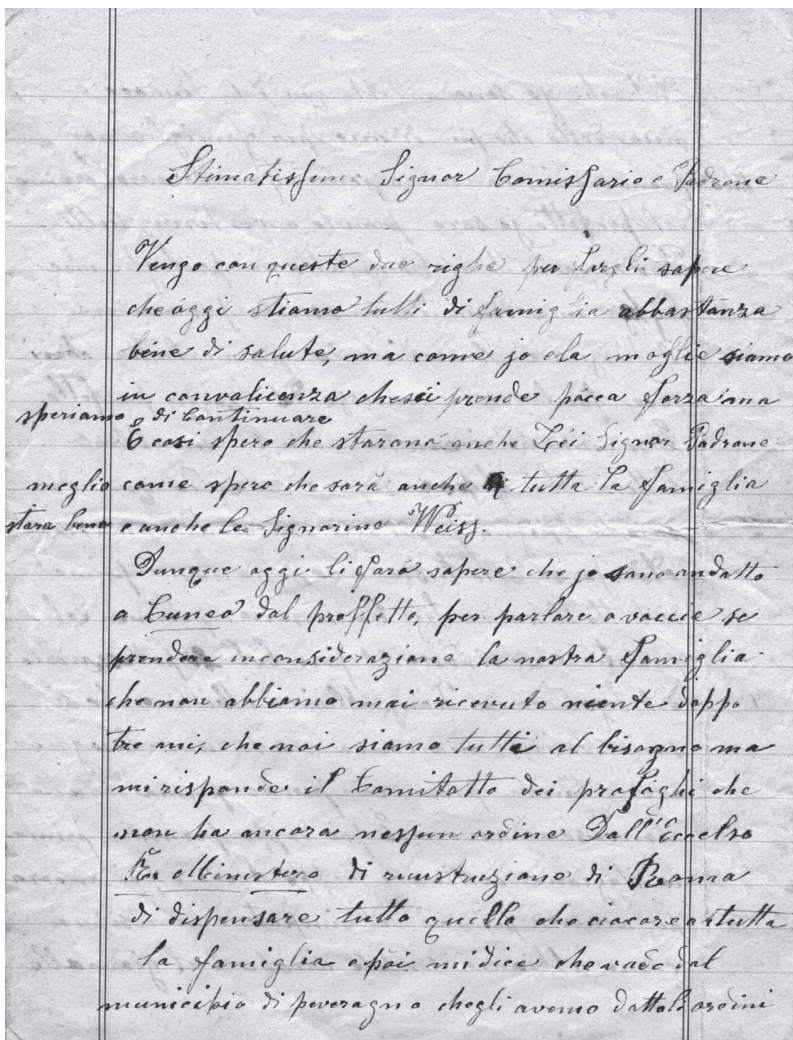 Stimatissimo Signor Comissario e Padrone
Vengo con queste due righe per fargli sapere
che oggi stiamo tutti di famiglia abbastanza
bene di salute, ma come jo ela moglie siamo
in convalicenza chesi prende pocca forza ma
speriamo di Continuare
E cosi spero che starano anche Lei Signor Padrone
meglio come spero che sarà anche tutta la famiglia
stara bene e anche le Signorine Weisz.
Dunque oggi li farò sapere che jo sono andatto
a Cuneo dal proffetto, per parlare a voccie se
prendere inconsiderazione la nostra famiglia
che non abbiamo mai ricevuto niente doppo
tre mi, che noi siamo tutti al bisogno ma
mi risponde il Comitatto dei profoghi che
non ha ancora nessun ordine Dall'Eccelso
Ministero di ricustruzione di Roma
di dispensare tutto quello che ciacore a tutta
la famiglia e poi midice che vado dal
municipio di peveragno chegli avemo datto li ordini